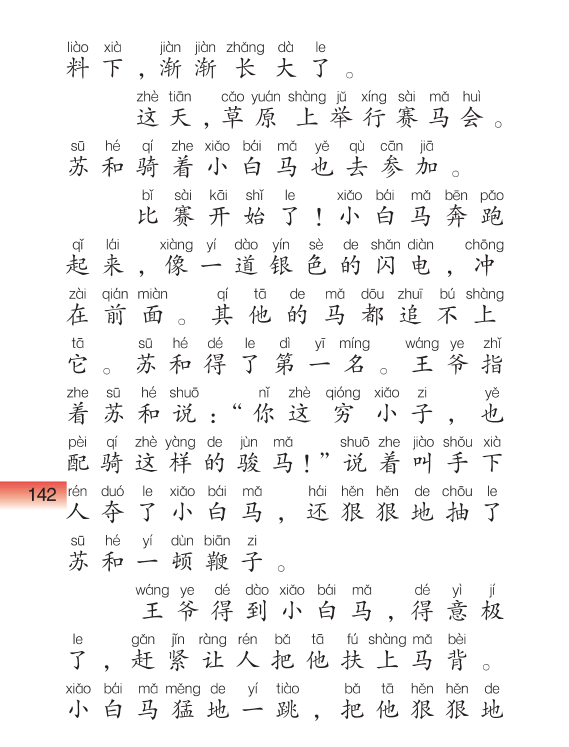 liào xià jiàn jiàn zhǎng dà le
料下，渐渐长大了。
zhè tiān cǎo yuán shàng jǔ xíng sài mǎ huì
这天，草原上举行赛马会。
sū hé qí zhe xiǎo bái mǎ yě qù cān jiā
苏和骑着小白马也去参加。
bǐ sài kāi shǐ le xiǎo bái mǎ bēn pǎo
比赛开始了！小白马奔跑
qǐ lái xiàng yí dào yín sè de shǎn diàn chōng
起来，像一道银色的闪电，冲
zài qián miàn qí tā de mǎ dōu zhuī bú shàng
在前面。其他的马都追不上
tā sū hé dé le dì yī míng wáng ye zhǐ
它。苏和得了第一名。王爷指
zhe sū hé shuō nǐ zhè qióng xiǎo zi yě
着苏和说：“你这穷小子，也
pèi qí zhè yàng de jùn mǎ shuō zhe jiào shǒu xià
配骑这样的骏马！”说着叫手下
142
rén duó le xiǎo bái mǎ hái hěn hěn de chōu le
人夺了小白马，还狠狠地抽了
sū hé yí dùn biān zi
苏和一顿鞭子。
wáng ye dé dào xiǎo bái mǎ dé yì jí
王爷得到小白马，得意极
le gǎn jǐn ràng rén bǎ tā fú shàng mǎ bèi
了，赶紧让人把他扶上马背。
xiǎo bái mǎ měng de yí tiào bǎ tā hěn hěn de
小白马猛地一跳，把他狠狠地